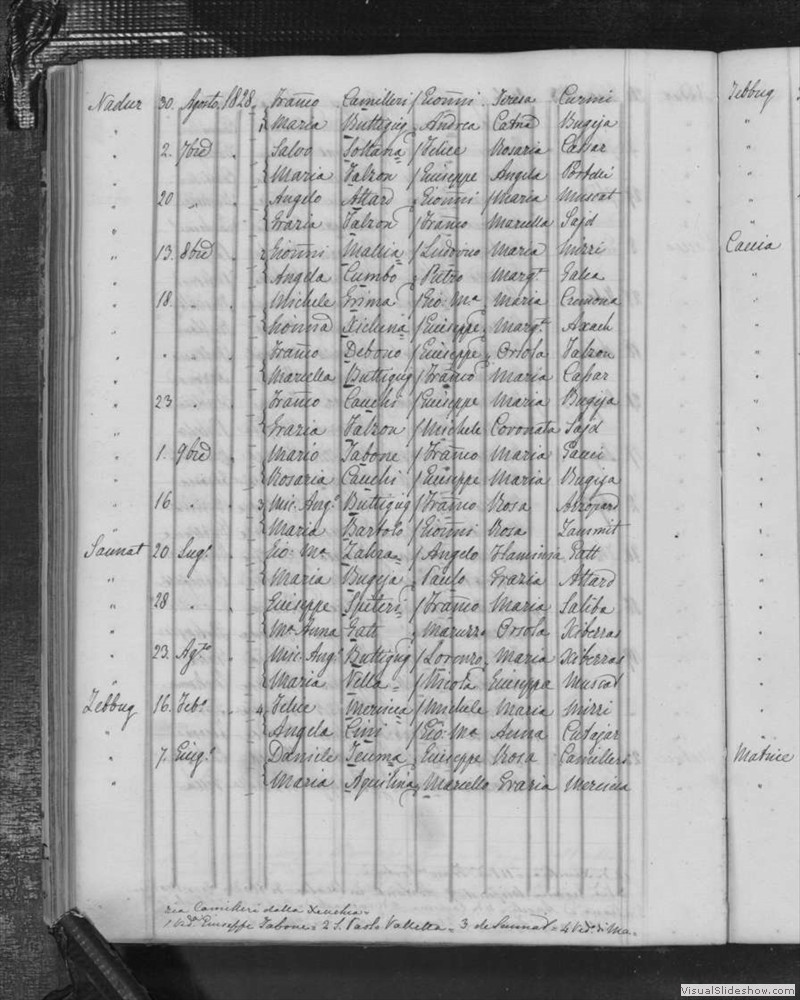 Nadur 30. Agosto, 1828. Franco Camilleri / Gioanni Teresa Curmi Zebbug
" Maria Buttigieg Andrea Catna Bugeja "
" 2. 7bre Salvo Soltana / Felice Rosaria Cassar
" Maria Falzon / Giuseppe Angela Portelli
" 20 " Angelo Attard Gioanni / Maria Muscat
" Grazia Falzon / Franco Mariella Sajd
" 13. 8bre 2 Gioanni Mallia / Ludovico Maria Mizzi Caccia
" Angela Cumbo Pietro Margt Galea
" 18 Michele Grima / Gio: Ma Maria Cremona
Xicluna / Giuseppe Margt. Axach
" Franco Debono / Giuseppe Orsola Falzon
" Mariella Buttigieg / Franco Maria Cassar
" 23 Franco Cauchi / Giuseppe Maria Bugeja
" Grazia Falzon / Michele Coronata Sajd
" 1. 9bre Mario Tabone / Franco Maria Gauci
" Rosaria Cauchi / Giuseppe Maria Bugeja
" 16 3 Mic. Ang. Buttigieg / Franco Rosa
" Maria Bartolo / Gioanni Rosa Zammit
Sannat 20 Lugo Gio: Ma Zahra / Angelo Flaminia Gatt
" Maria Bugeja Paulo Grazia Attard
" 28 Giuseppe Spiteri / Franco Maria Saliba
" Ma Anna Gatt Orsola Xiberras
" 23. Agto Mic. Ang. Buttigieg / Lorenzo Maria Xiberras
" Maria Vella / Nicola Giuseppa Muscat
Zebbug 16. Feb. 4 Felice Mercieca / Michele Maria Mizzi
" Angela Cini / Gio: Ma Anna Cutajar
" 7. Giug. Daniele Teuma Giuseppe Rosa Camilleri Matrice
" Maria Aquilina Marcello Grazia Mercieca
Camilleri dalla Xeuchia.
1 Vedo. Giuseppe Tabone = 2 S. Paolo Valletta = 3 di Sannat = 4 Ved. di Ma.
VisualSlideshow.com